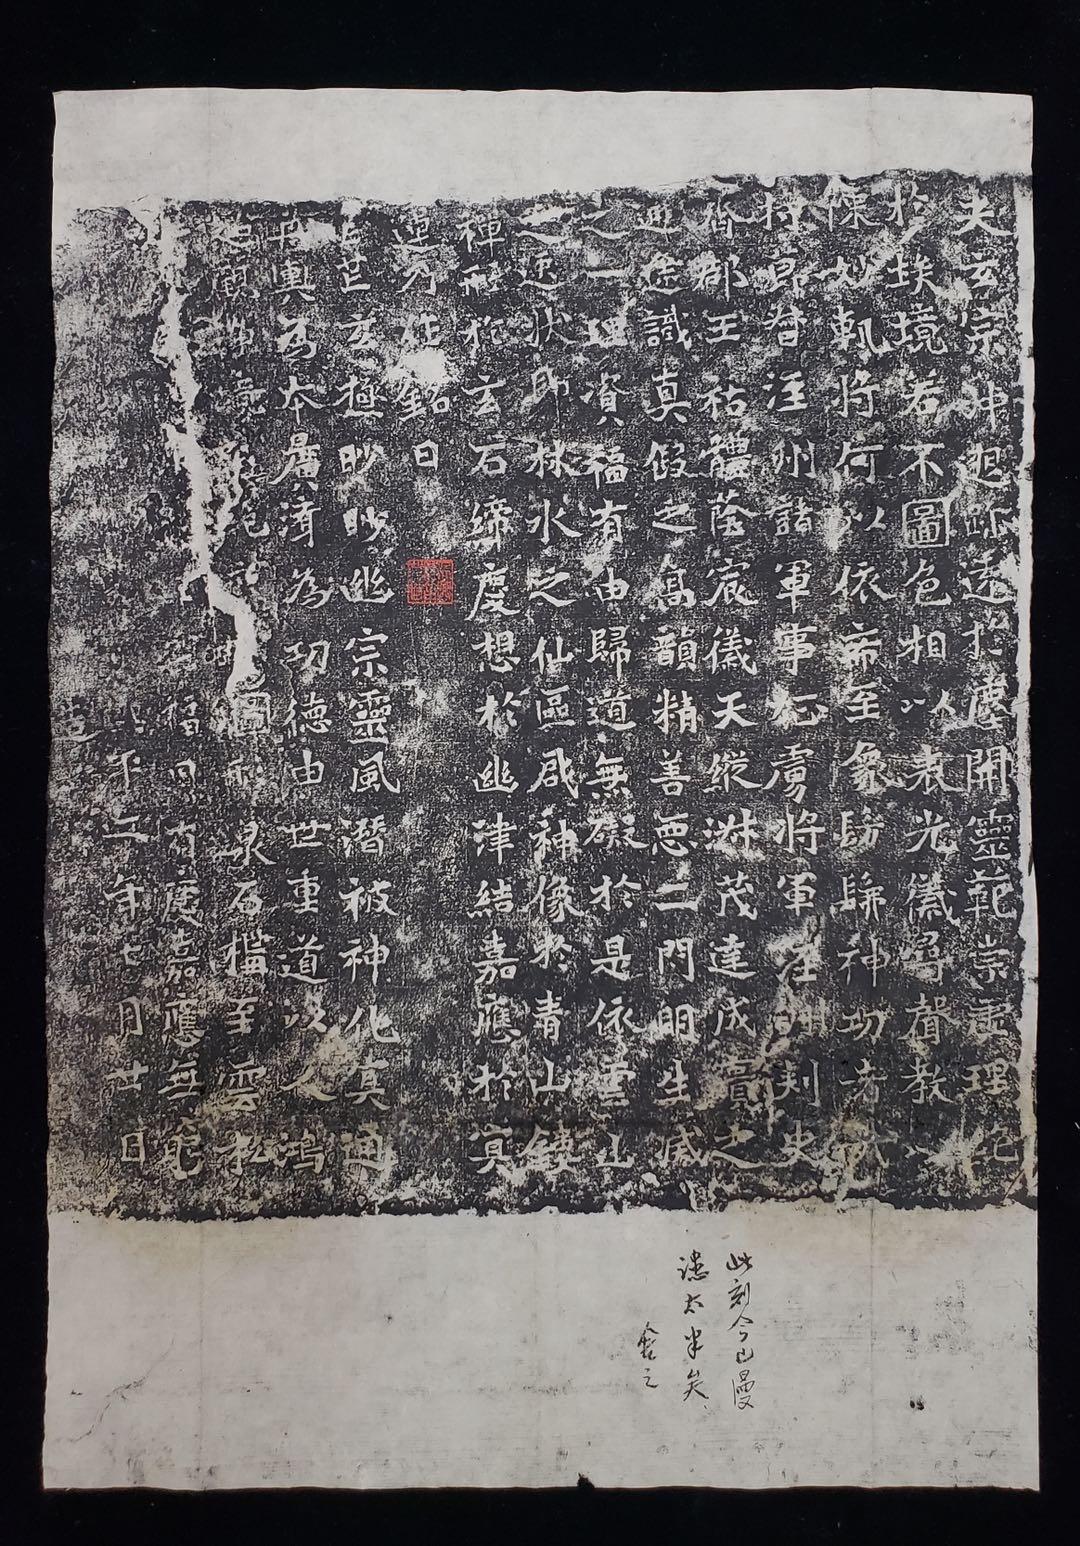 夫玄宗沖迥跡遠於塵開靈範崇虛理絶
於埃境若不圖色相以表光儀尋聲教以
陳妙軌將何以依希至象髣髴神功者哉
持節督涇州諸軍事征虜將軍涇州刺史
齊郡王祐體蔭宸儀天縱淋茂達成實之
通途識真假之高韻精善惡二門明生滅
之一理資福有由歸道無礙於是依山
之逸狀即林水之仙區啟神像於青山鏤
禪形於玄石締慶想於幽津結嘉應於冥
運乃作銘曰
芒芒玄極眇眇幽宗靈風潛被神化冥通
舟輿為本廣濟為功德由世重道以人鴻
迥觀 淨境 圖形泉石構至雲松
福日有慶嘉應無窮
平二年七月廿日
造
此刻今已漫
漶太半矣